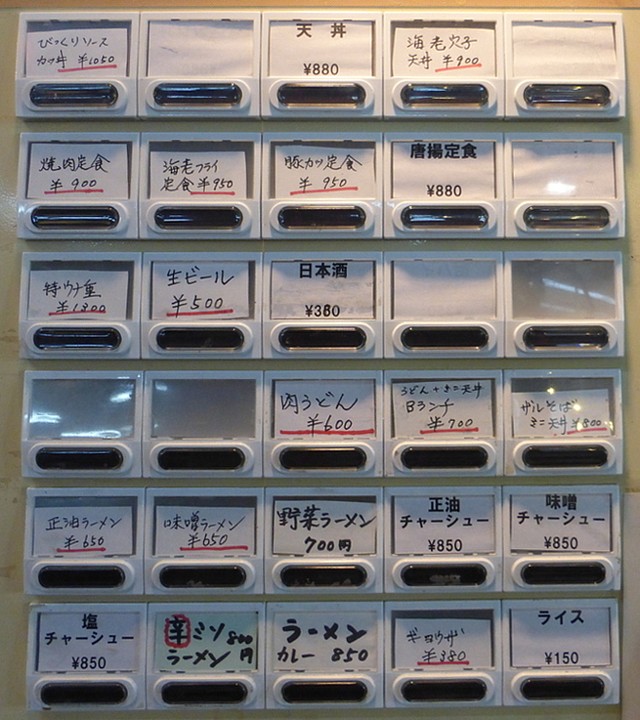 びっくりソース
カツ丼 ¥1050
天丼
¥880
海老穴子
天丼 ¥900
焼肉定食
¥900
海老フライ
定食 ¥950
豚カツ定食
¥950
唐揚定食
¥880
特ウナ重
¥1300
生ビール
¥500
日本酒
¥380
肉うどん
¥600
うどん+ミニ天丼
Bランチ
¥700
ザルそば
ミニ天丼 ¥800
正油ラーメン
¥650
味噌ラーメン
¥650
野菜ラーメン
700円
正油
チャーシュー
¥850
味噌
チャーシュー
¥850
塩
チャーシュー
¥850
辛ミソ 800
ラーメン 円
ラーメン
カレー 850
ギョウザ
¥380
ライス
¥150